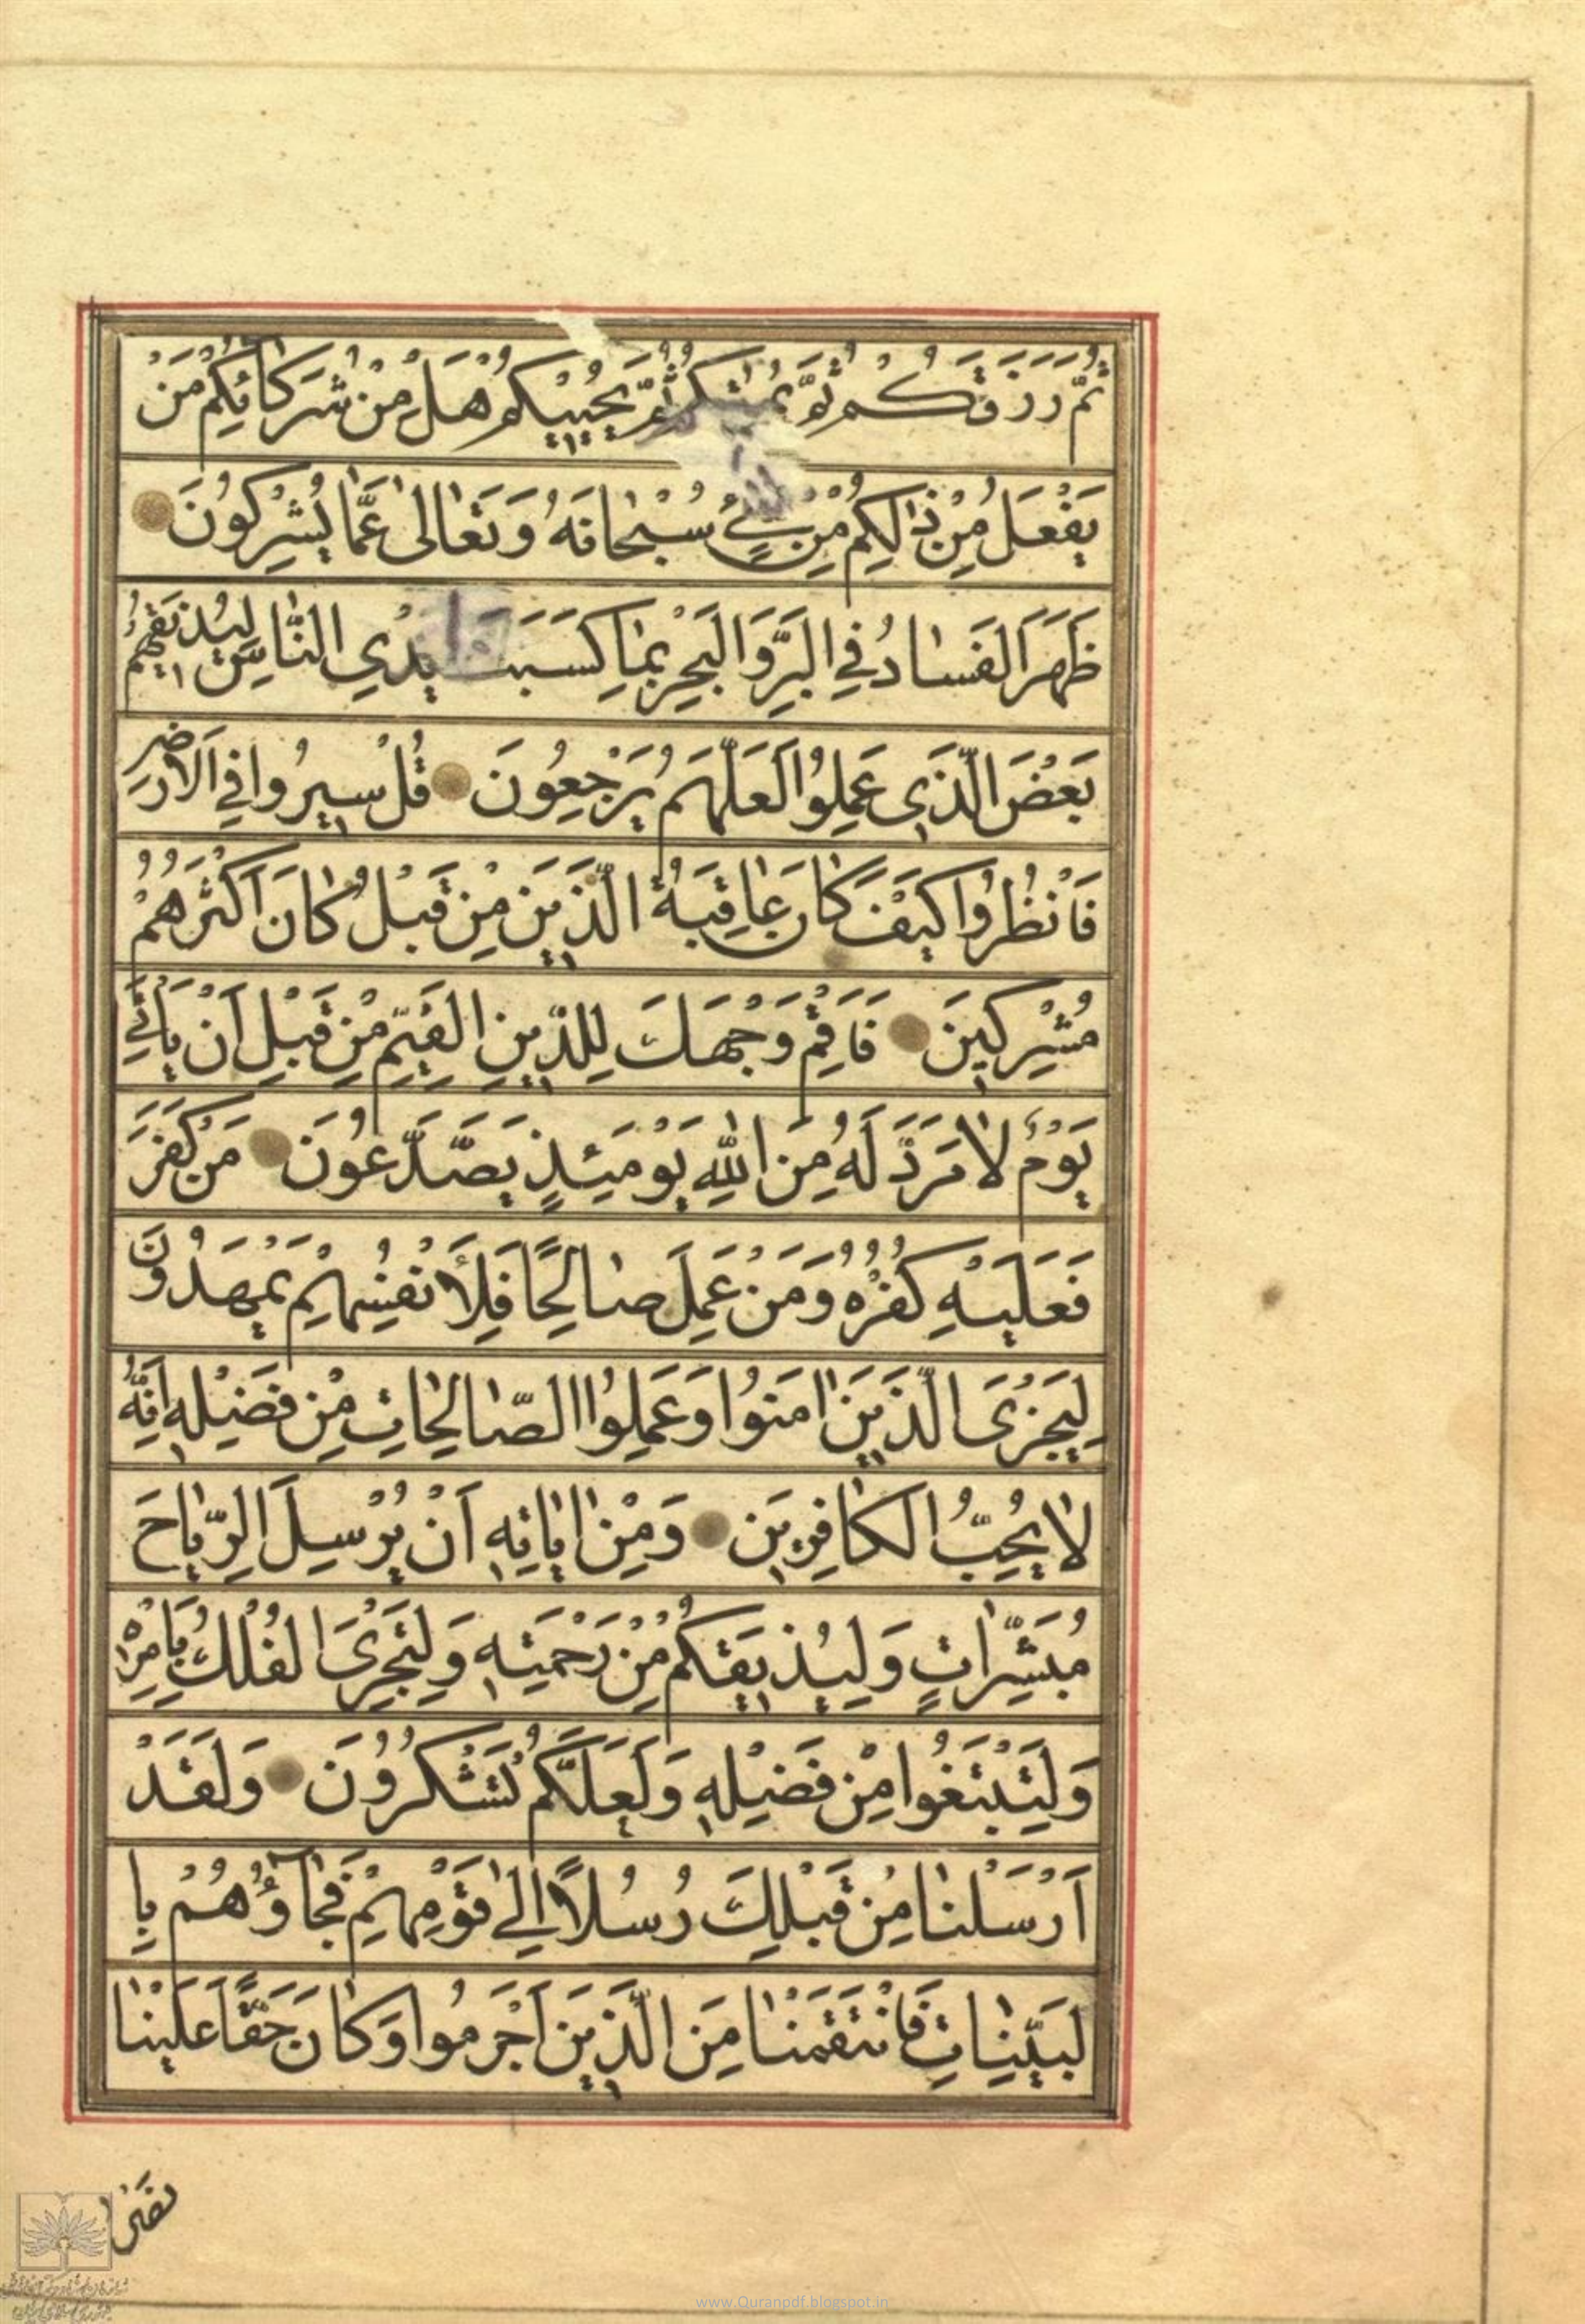 ثُمَّ رَزَقَكُمْ ثُمَّ يُمِيتُكُمْ ثُمَّ يُحْيِيكُمْ هَلْ مِنْ شُرَكَائِكُمْ مَنْ
يَفْعَلُ مِنْ ذٰلِكُمْ مِنْ شَيْءٍ سُبْحَانَهُ وَتَعَالٰى عَمَّا يُشْرِكُونَ
ظَهَرَ الْفَسَادُ فِي الْبَرِّ وَالْبَحْرِ بِمَا كَسَبَتْ اَيْدِي النَّاسِ لِيُذِيقَهُمْ
بَعْضَ الَّذِي عَمِلُوا لَعَلَّهُمْ يَرْجِعُونَ قُلْ سِيرُوا فِي الْاَرْضِ
فَانْظُرُوا كَيْفَ كَانَ عَاقِبَةُ الَّذِينَ مِنْ قَبْلُ كَانَ اَكْثَرُهُمْ
مُشْرِكِينَ فَاَقِمْ وَجْهَكَ لِلدِّينِ الْقَيِّمِ مِنْ قَبْلِ اَنْ يَاْتِيَ
يَوْمٌ لَا مَرَدَّ لَهُ مِنَ اللّٰهِ يَوْمَئِذٍ يَصَّدَّعُونَ مَنْ كَفَرَ
فَعَلَيْهِ كُفْرُهُ وَمَنْ عَمِلَ صَالِحًا فَلِاَنْفُسِهِمْ يَمْهَدُونَ
لِيَجْزِيَ الَّذِينَ اٰمَنُوا وَعَمِلُوا الصَّالِحَاتِ مِنْ فَضْلِهِ اِنَّهُ
لَا يُحِبُّ الْكَافِرِينَ وَمِنْ اٰيَاتِهِ اَنْ يُرْسِلَ الرِّيَاحَ
مُبَشِّرَاتٍ وَلِيُذِيقَكُمْ مِنْ رَحْمَتِهِ وَلِتَجْرِيَ الْفُلْكُ بِاَمْرِهِ
وَلِتَبْتَغُوا مِنْ فَضْلِهِ وَلَعَلَّكُمْ تَشْكُرُونَ وَلَقَدْ
اَرْسَلْنَا مِنْ قَبْلِكَ رُسُلًا اِلٰى قَوْمِهِمْ فَجَاؤُهُمْ بِا
لْبَيِّنَاتِ فَانْتَقَمْنَا مِنَ الَّذِينَ اَجْرَمُوا وَكَانَ حَقًّا عَلَيْنَا
www.Quranpdf.blogspot.in